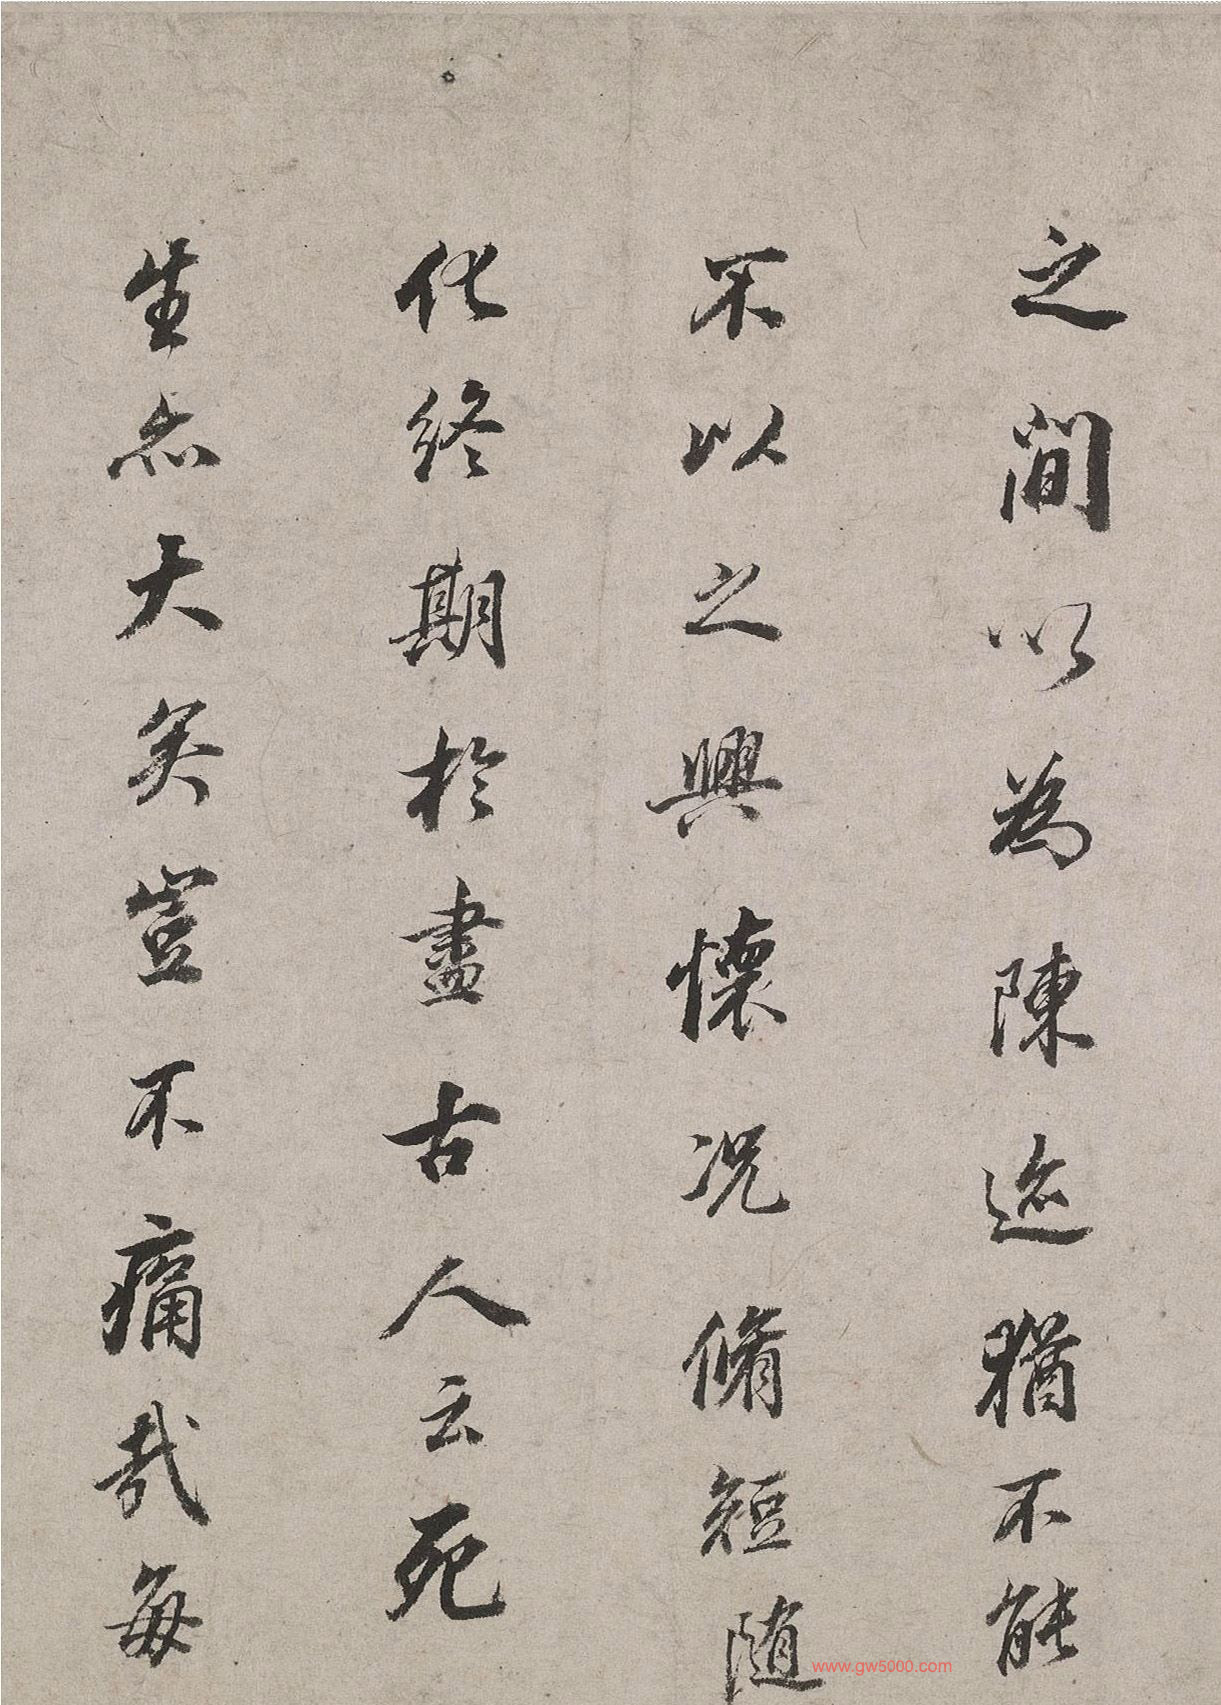 之間以為陳迹猶不能
不以之興懷况脩短随
化終期於盡古人云死
生亦大矣豈不痛哉每
www.gw5000.com